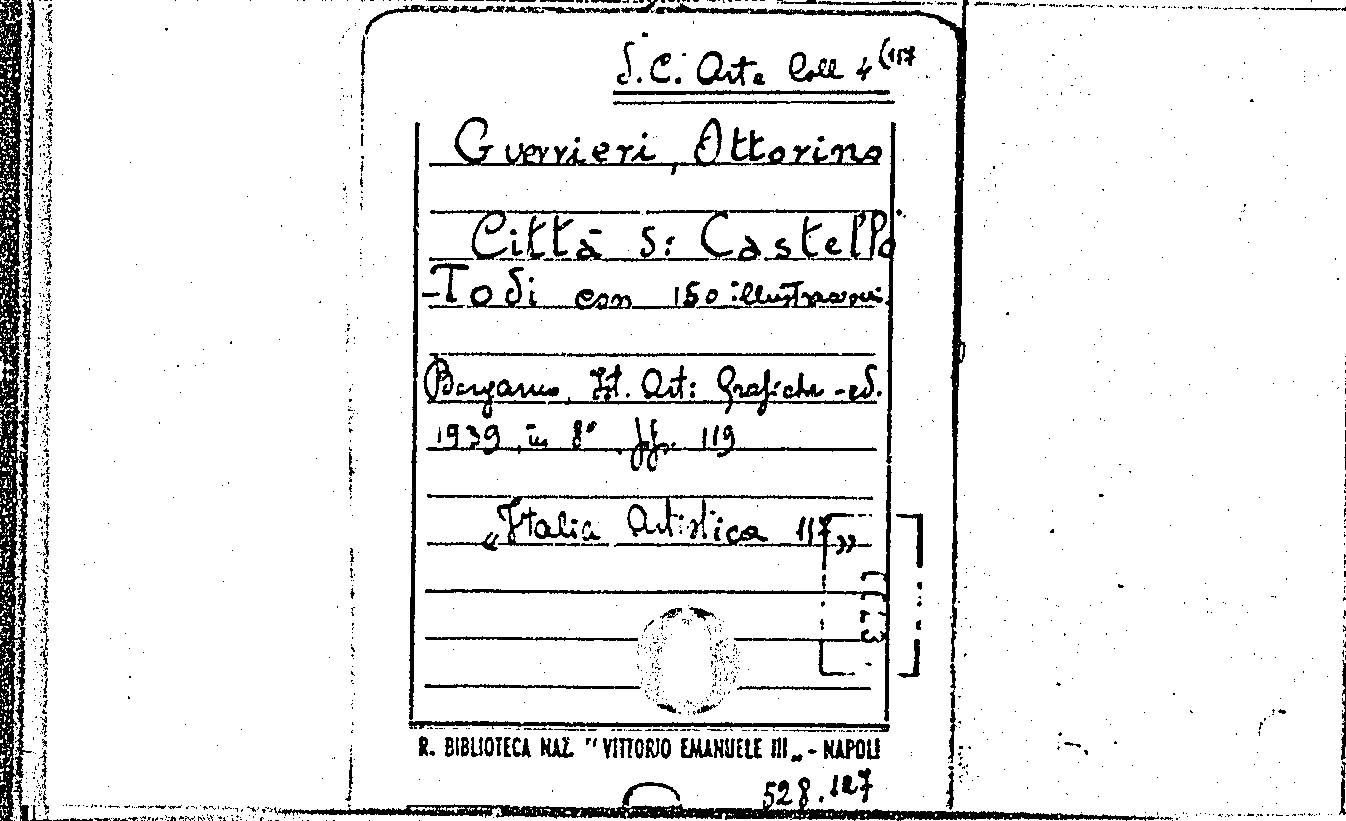 S.C. Arte Coll 4 (117
Guerrieri, Ottorino
Città di Castello
-Todi con 150 illustrazioni.
Bergamo, Ist. Arti Grafiche - ed.
1939, in 8° pp. 119
"Italia Artistica 117"
R. BIBLIOTECA NAZ. "VITTORIO EMANUELE III„ - NAPOLI
528.127